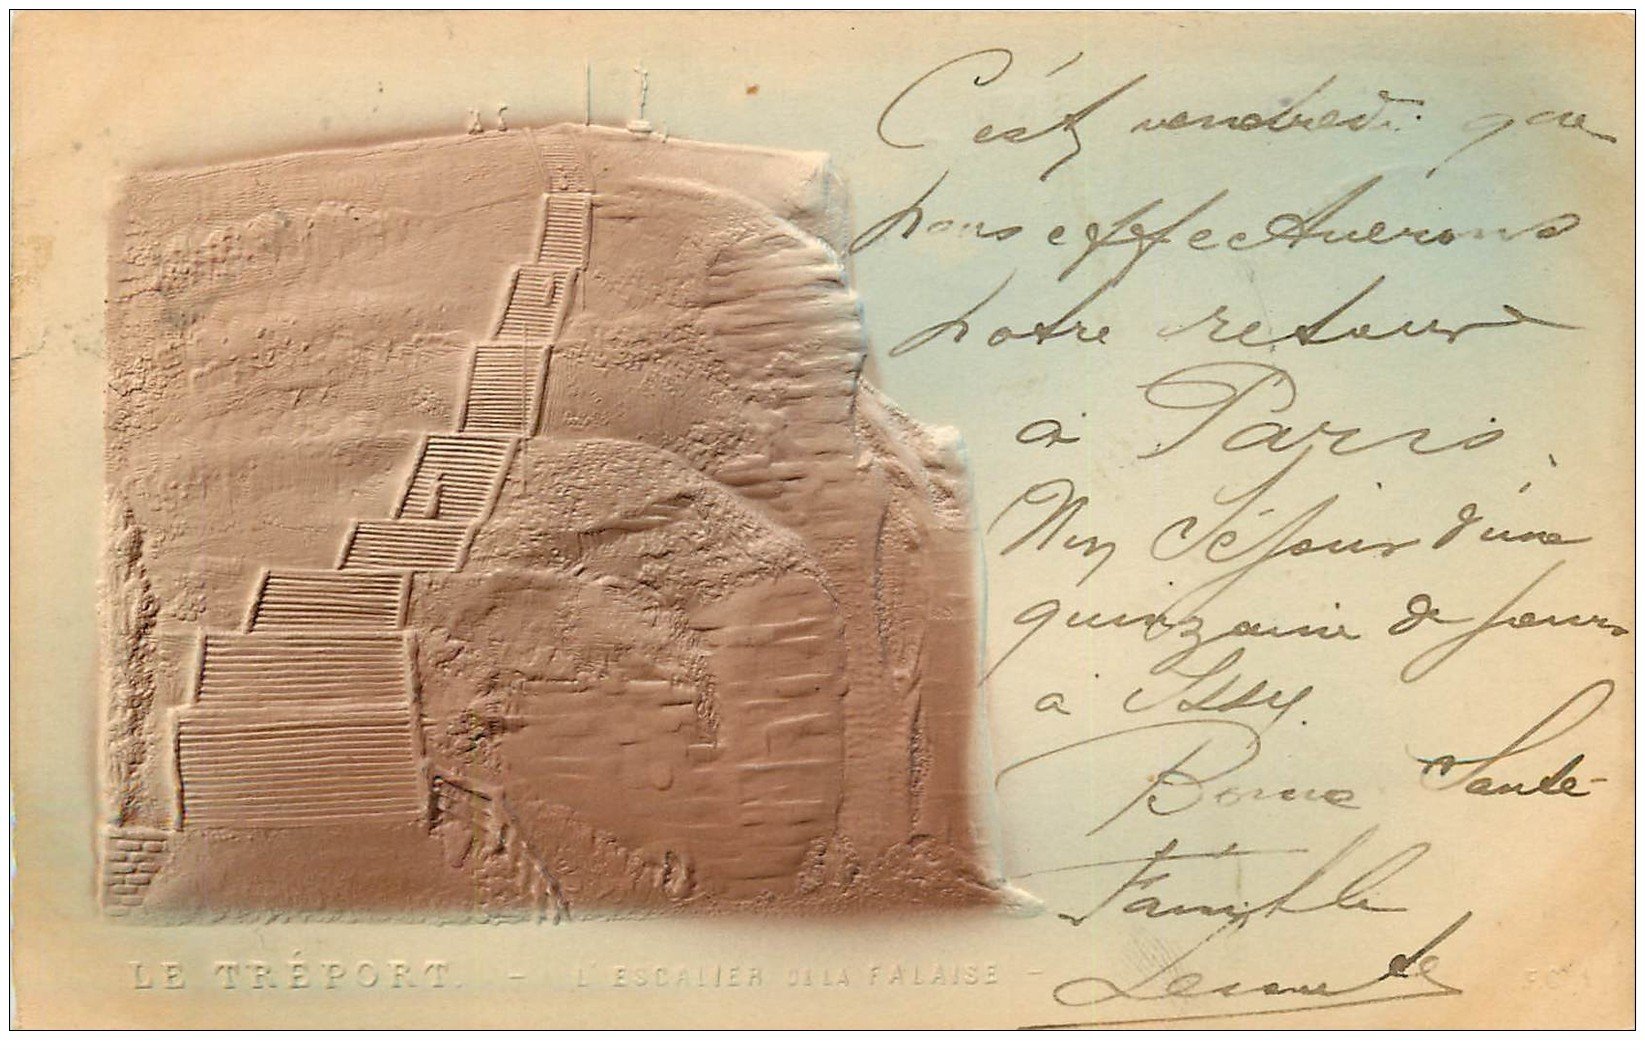 C'est vendredi que
nous effectuerons
notre retour
à Paris
Un Séjour d'une
quinzaine de jours
à Issy.
Bonne Santé
Famille
LE TRÉPORT. - L'ESCALIER DE LA FALAISE -